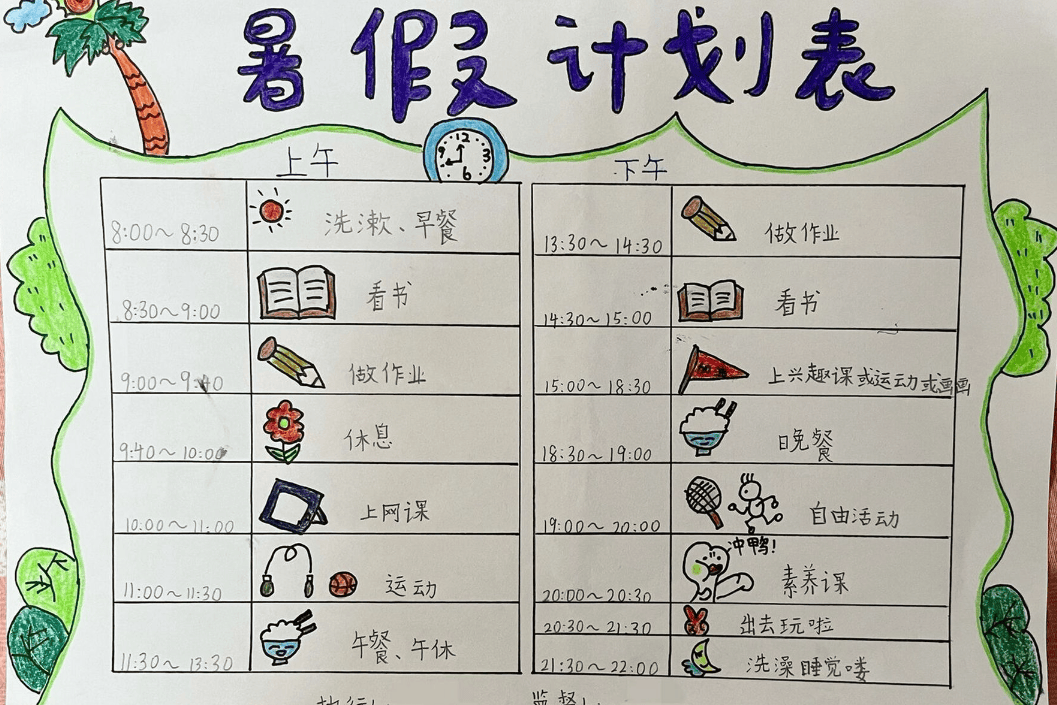 暑假计划表
上午
8:00～8:30 洗漱、早餐
8:30～9:00 看书
9:00～9:40 做作业
9:40～10:00 休息
10:00～11:00 上网课
11:00～11:30 运动
11:30～13:30 午餐、午休
下午
13:30～14:30 做作业
14:30～15:00 看书
15:00～18:30 上兴趣课或运动或画画
18:30～19:00 晚餐
19:00～20:00 自由活动
冲鸭!
20:00～20:30 素养课
20:30～21:30 出去玩啦
21:30～22:00 洗澡睡觉喽
12
3
6
9